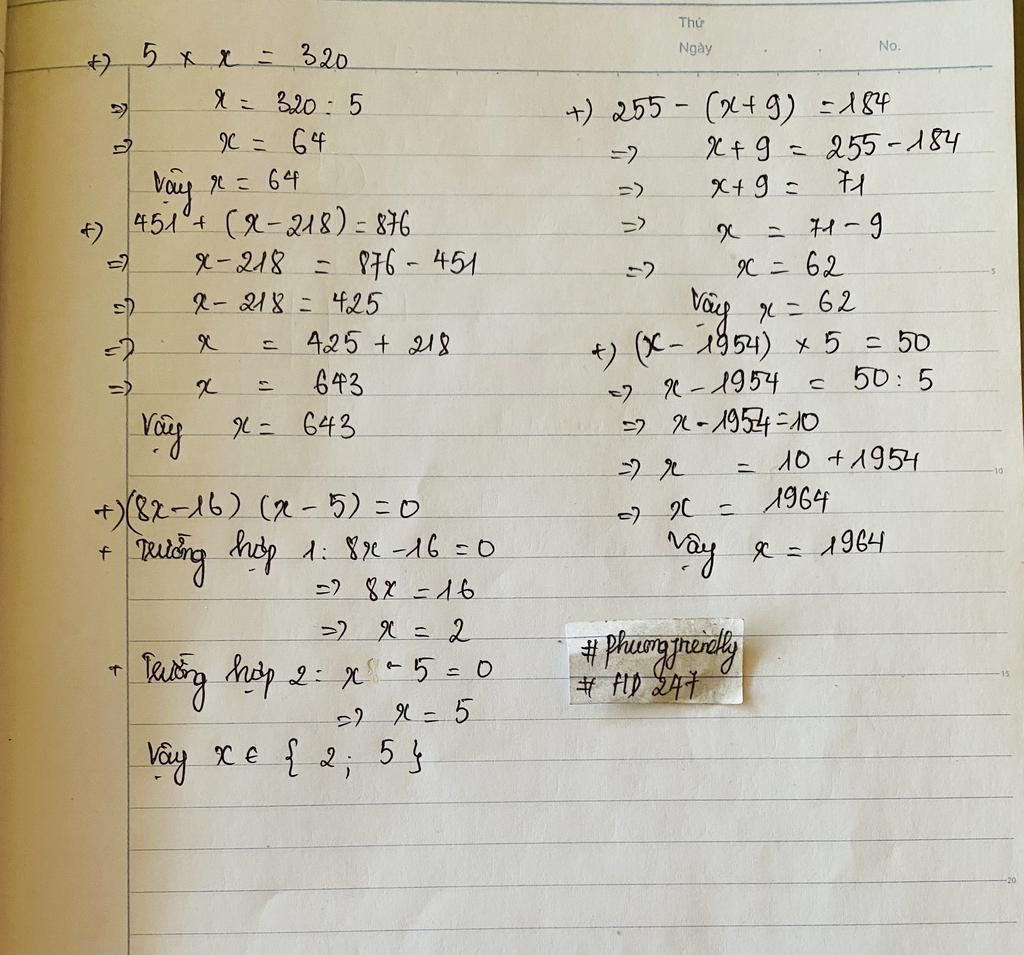 Thứ
Ngày . . No.
+) 5 × x = 320
=> x = 320 : 5
=> x = 64
Vậy x = 64
+) 451 + (x - 218) = 876
=> x - 218 = 876 - 451
=> x - 218 = 425
=> x = 425 + 218
=> x = 643
Vậy x = 643
+) (8x - 16) (x - 5) = 0
+ Trường hợp 1: 8x - 16 = 0
=> 8x = 16
=> x = 2
+ Trường hợp 2: x - 5 = 0
=> x = 5
Vậy x ∈ { 2; 5 }
+) 255 - (x + 9) = 184
=> x + 9 = 255 - 184
=> x + 9 = 71
=> x = 71 - 9
=> x = 62
Vậy x = 62
+) (x - 1954) × 5 = 50
=> x - 1954 = 50 : 5
=> x - 1954 = 10
=> x = 10 + 1954
=> x = 1964
Vậy x = 1964
# phuongfriendly
# HD 247
5
10
15
20